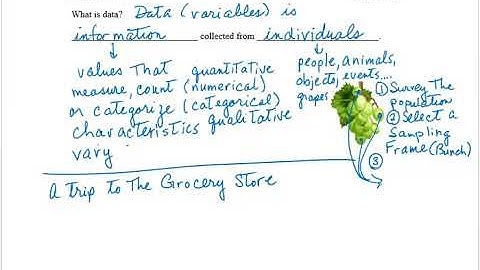 What is data? Data (variables) is
information collected from individuals.
values That quantitative
measure, count (numerical)
or categorize (categorical)
characteristics qualitative
vary
people, animals,
objects, events....
grapes
① Survey The
population
② Select a
Sampling
Frame (Bunch)
③
A Trip to The Grocery Store